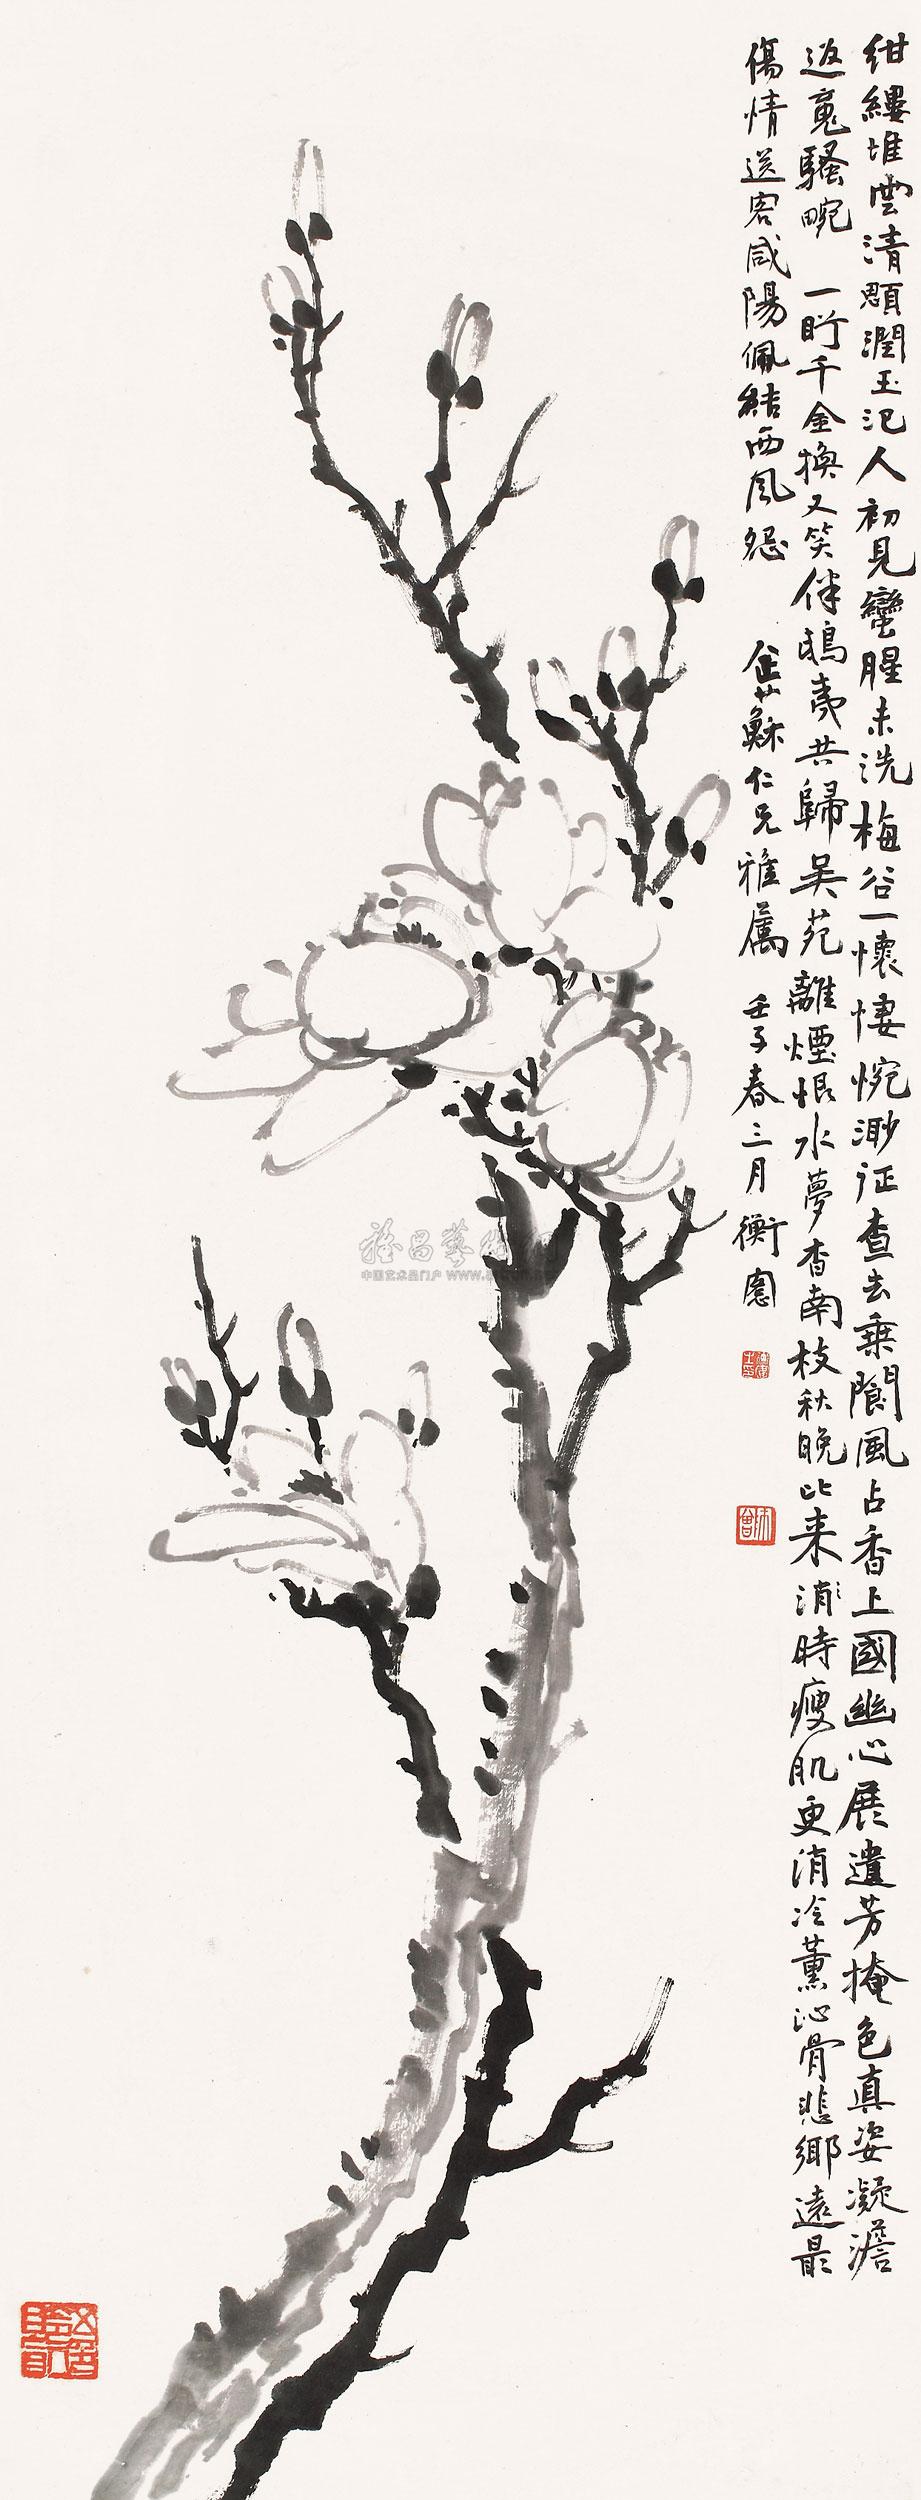 紺縷堆雲清顋潤玉氾人初見蠻腥未洗梅谷一懷悽惋渺征查去乘閬風占香上國幽心展遺芳掩色真姿凝澹
返魂騷畹 一盻千金換又笑伴鴟夷共歸吳苑離煙恨水夢杳南枝秋晚比来消時瘦肌更消冷薰沁骨悲鄉遠最
傷情送客咸陽佩結西風怨 企蘇仁兄雅屬 壬子春三月 衡窻
師曾
中国艺术品门户